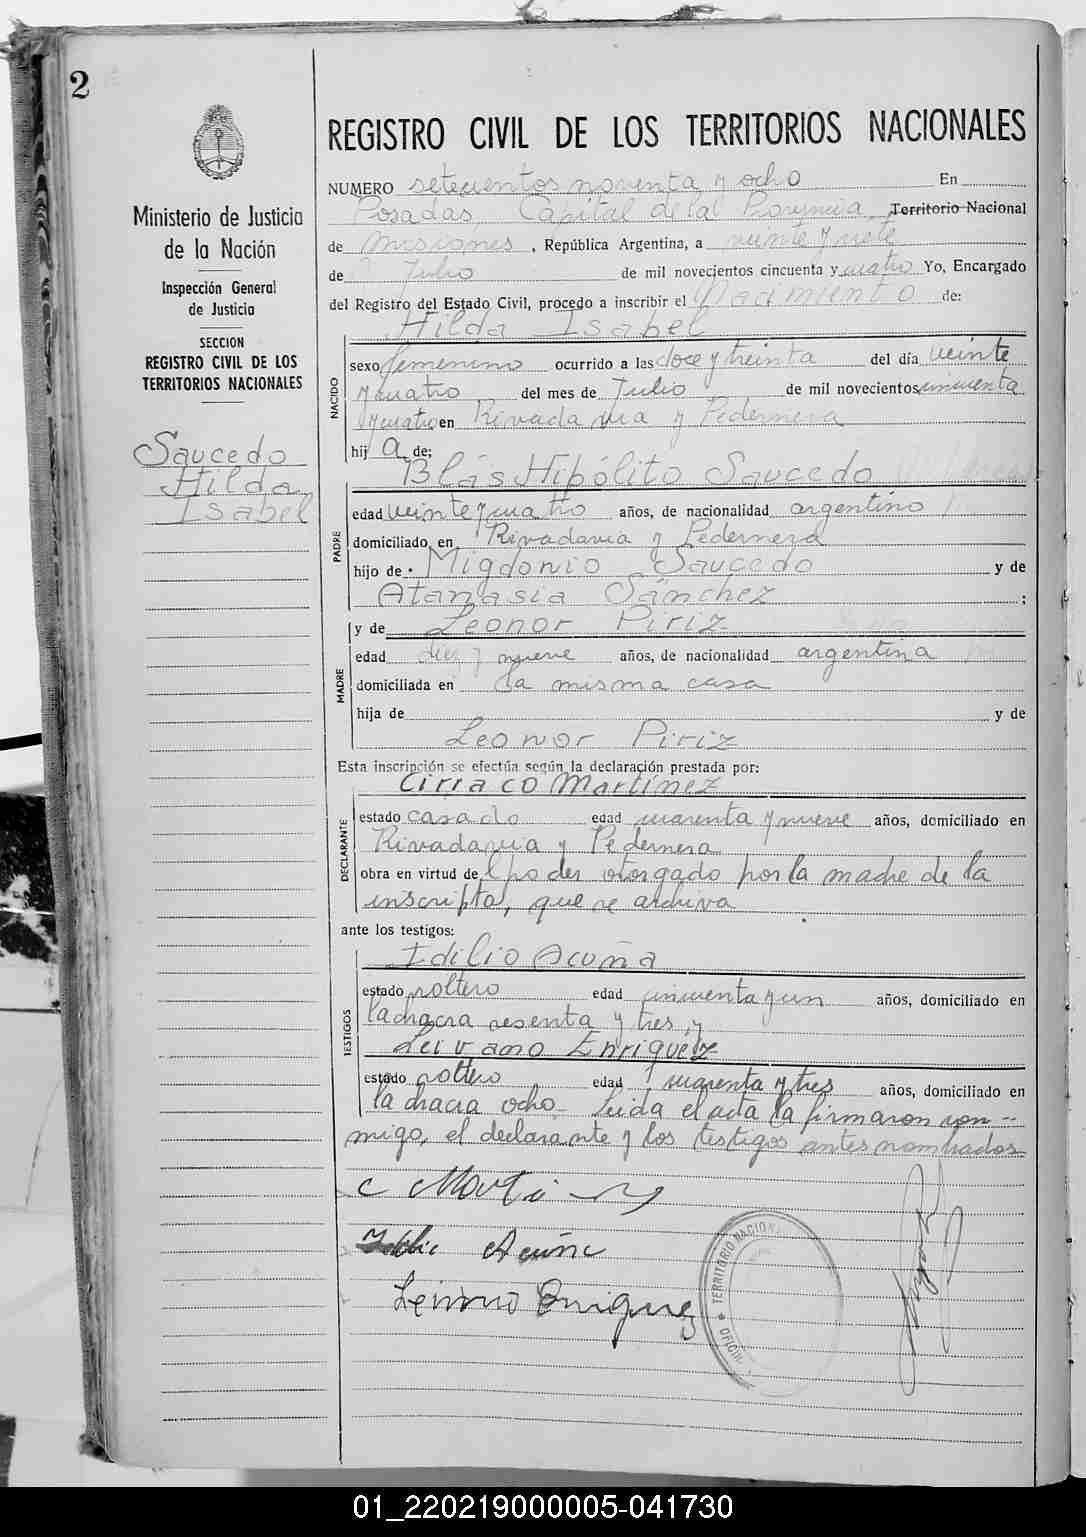 2
Ministerio de Justicia
de la Nación
Inspección General
de Justicia
SECCION
REGISTRO CIVIL DE LOS
TERRITORIOS NACIONALES
Saucedo
Hilda
Isabel
REGISTRO CIVIL DE LOS TERRITORIOS NACIONALES
NUMERO setecientos noventa y ocho En
Posadas, Capital de la Provincia Territorio Nacional
de Misiones, República Argentina, a veinte y siete
de Julio de mil novecientos cincuenta y cuatro Yo, Encargado
del Registro del Estado Civil, procedo a inscribir el Nacimiento de:
Hilda Isabel
NACIDO
sexo femenino ocurrido a las doce y treinta del día veinte
y cuatro del mes de Julio de mil novecientos cincuenta
y cuatro en Rivadavia y Pedernera
hij a de;
Blás Hipólito Saucedo
PADRE
edad veinte y cuatro años, de nacionalidad argentino
domiciliado en Rivadavia y Pedernera
hijo de Migdonio Saucedo y de
Atanasia Sánchez ;
y de Leonor Piriz
MADRE
edad diez y nueve años, de nacionalidad argentina
domiciliada en la misma casa
hija de y de
Leonor Piriz
Esta inscripción se efectúa según la declaración prestada por:
Ciriaco Martínez
DECLARANTE
estado casado edad cuarenta y nueve años, domiciliado en
Rivadavia y Pedernera
obra en virtud de l poder otorgado por la madre de la
inscripta, que se archiva
ante los testigos:
Idilio Acuña
TESTIGOS
estado soltero edad cincuenta y un años, domiciliado en
la chacra sesenta y tres, y
Leivano Enriquez
estado soltero edad cuarenta y tres años, domiciliado en
la chacra ocho. Leida el acta la firmaron con--
migo, el declarante y los testigos antes nombrados
C Martinez
Idilio Acuña
Leivano Enriquez
TERRITORIO NACIONAL
OFICIN
01_220219000005-041730